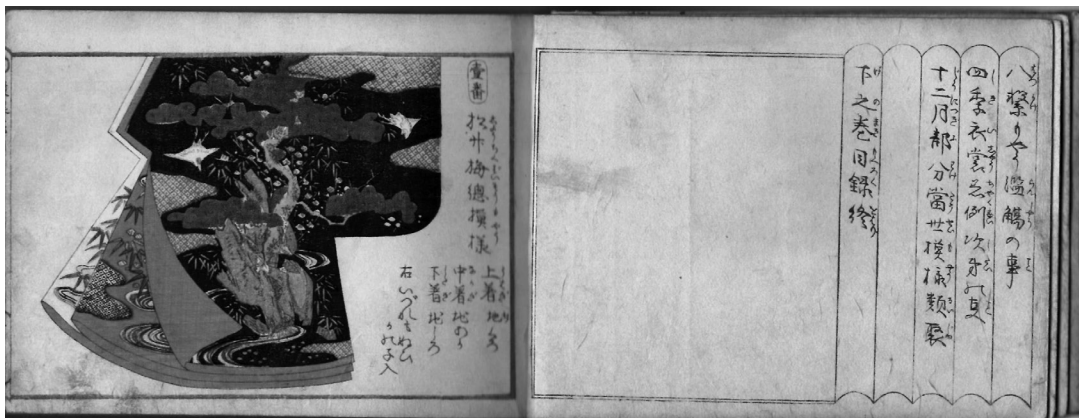 八繋もやう濫觴の事
四季衣裳着例次第の事
十二月部分當世模様類聚
下之巻目録終
壹番
松竹梅總摸様
上着地くろ
中着地あか
下着地しろ
右いづれもぬひ
かのこ入